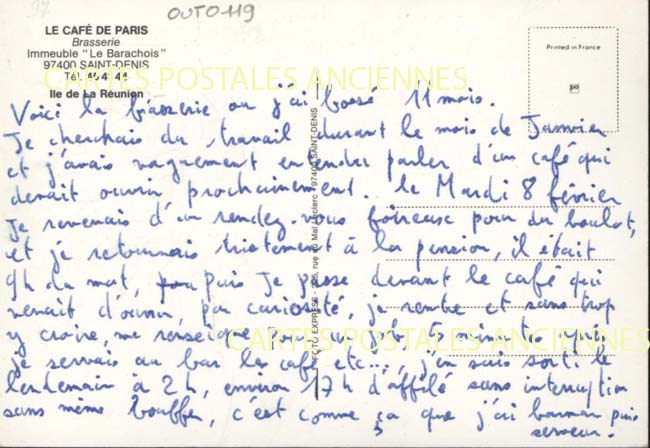 OUTO119
LE CAFÉ DE PARIS
Brasserie
Immeuble "Le Barachois"
97400 SAINT-DENIS
Tél.
Ile de La Réunion
Printed in France
CARTES POSTALES ANCIENNES
Voici la brasserie ou j'ai bossé 11 mois.
Je cherchais du travail durant le mois de Janvier
et j'avais vaguement entendu parler d'un café qui
devait ouvrir prochainement. le Mardi 8 février
je revenais d'un rendez-vous foireuse pour du boulot,
et je retournais tristement à la pension, il était
9h du mat, puis je passe devant le café qui
venait d'ouvrir, par curiosité, je rentre et sans trop
y croire, me renseigne 5 minutes
je servais au bar les café etc..., j'en suis sorti le
lendemain à 2h, environ 17h d'affilé sans interruption
sans même bouffer, c'est comme ça que j'ai barman puis
serveur.
CARTES POSTALES ANCIENNES
97400 SAINT-DENIS